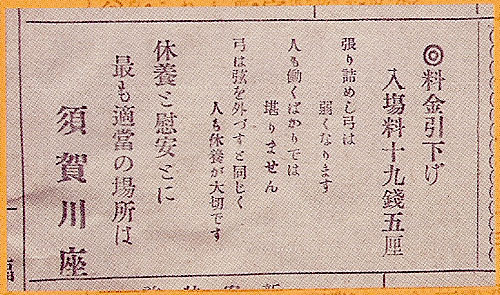 ◎料金引下げ
入場料十九錢五厘
張り詰めし弓は
弱くなります
人も働くばかりでは
堪りません
弓は弦を外づすと同じく
人も休養が大切です
休養と慰安とに
最も適當の場所は
須賀川座